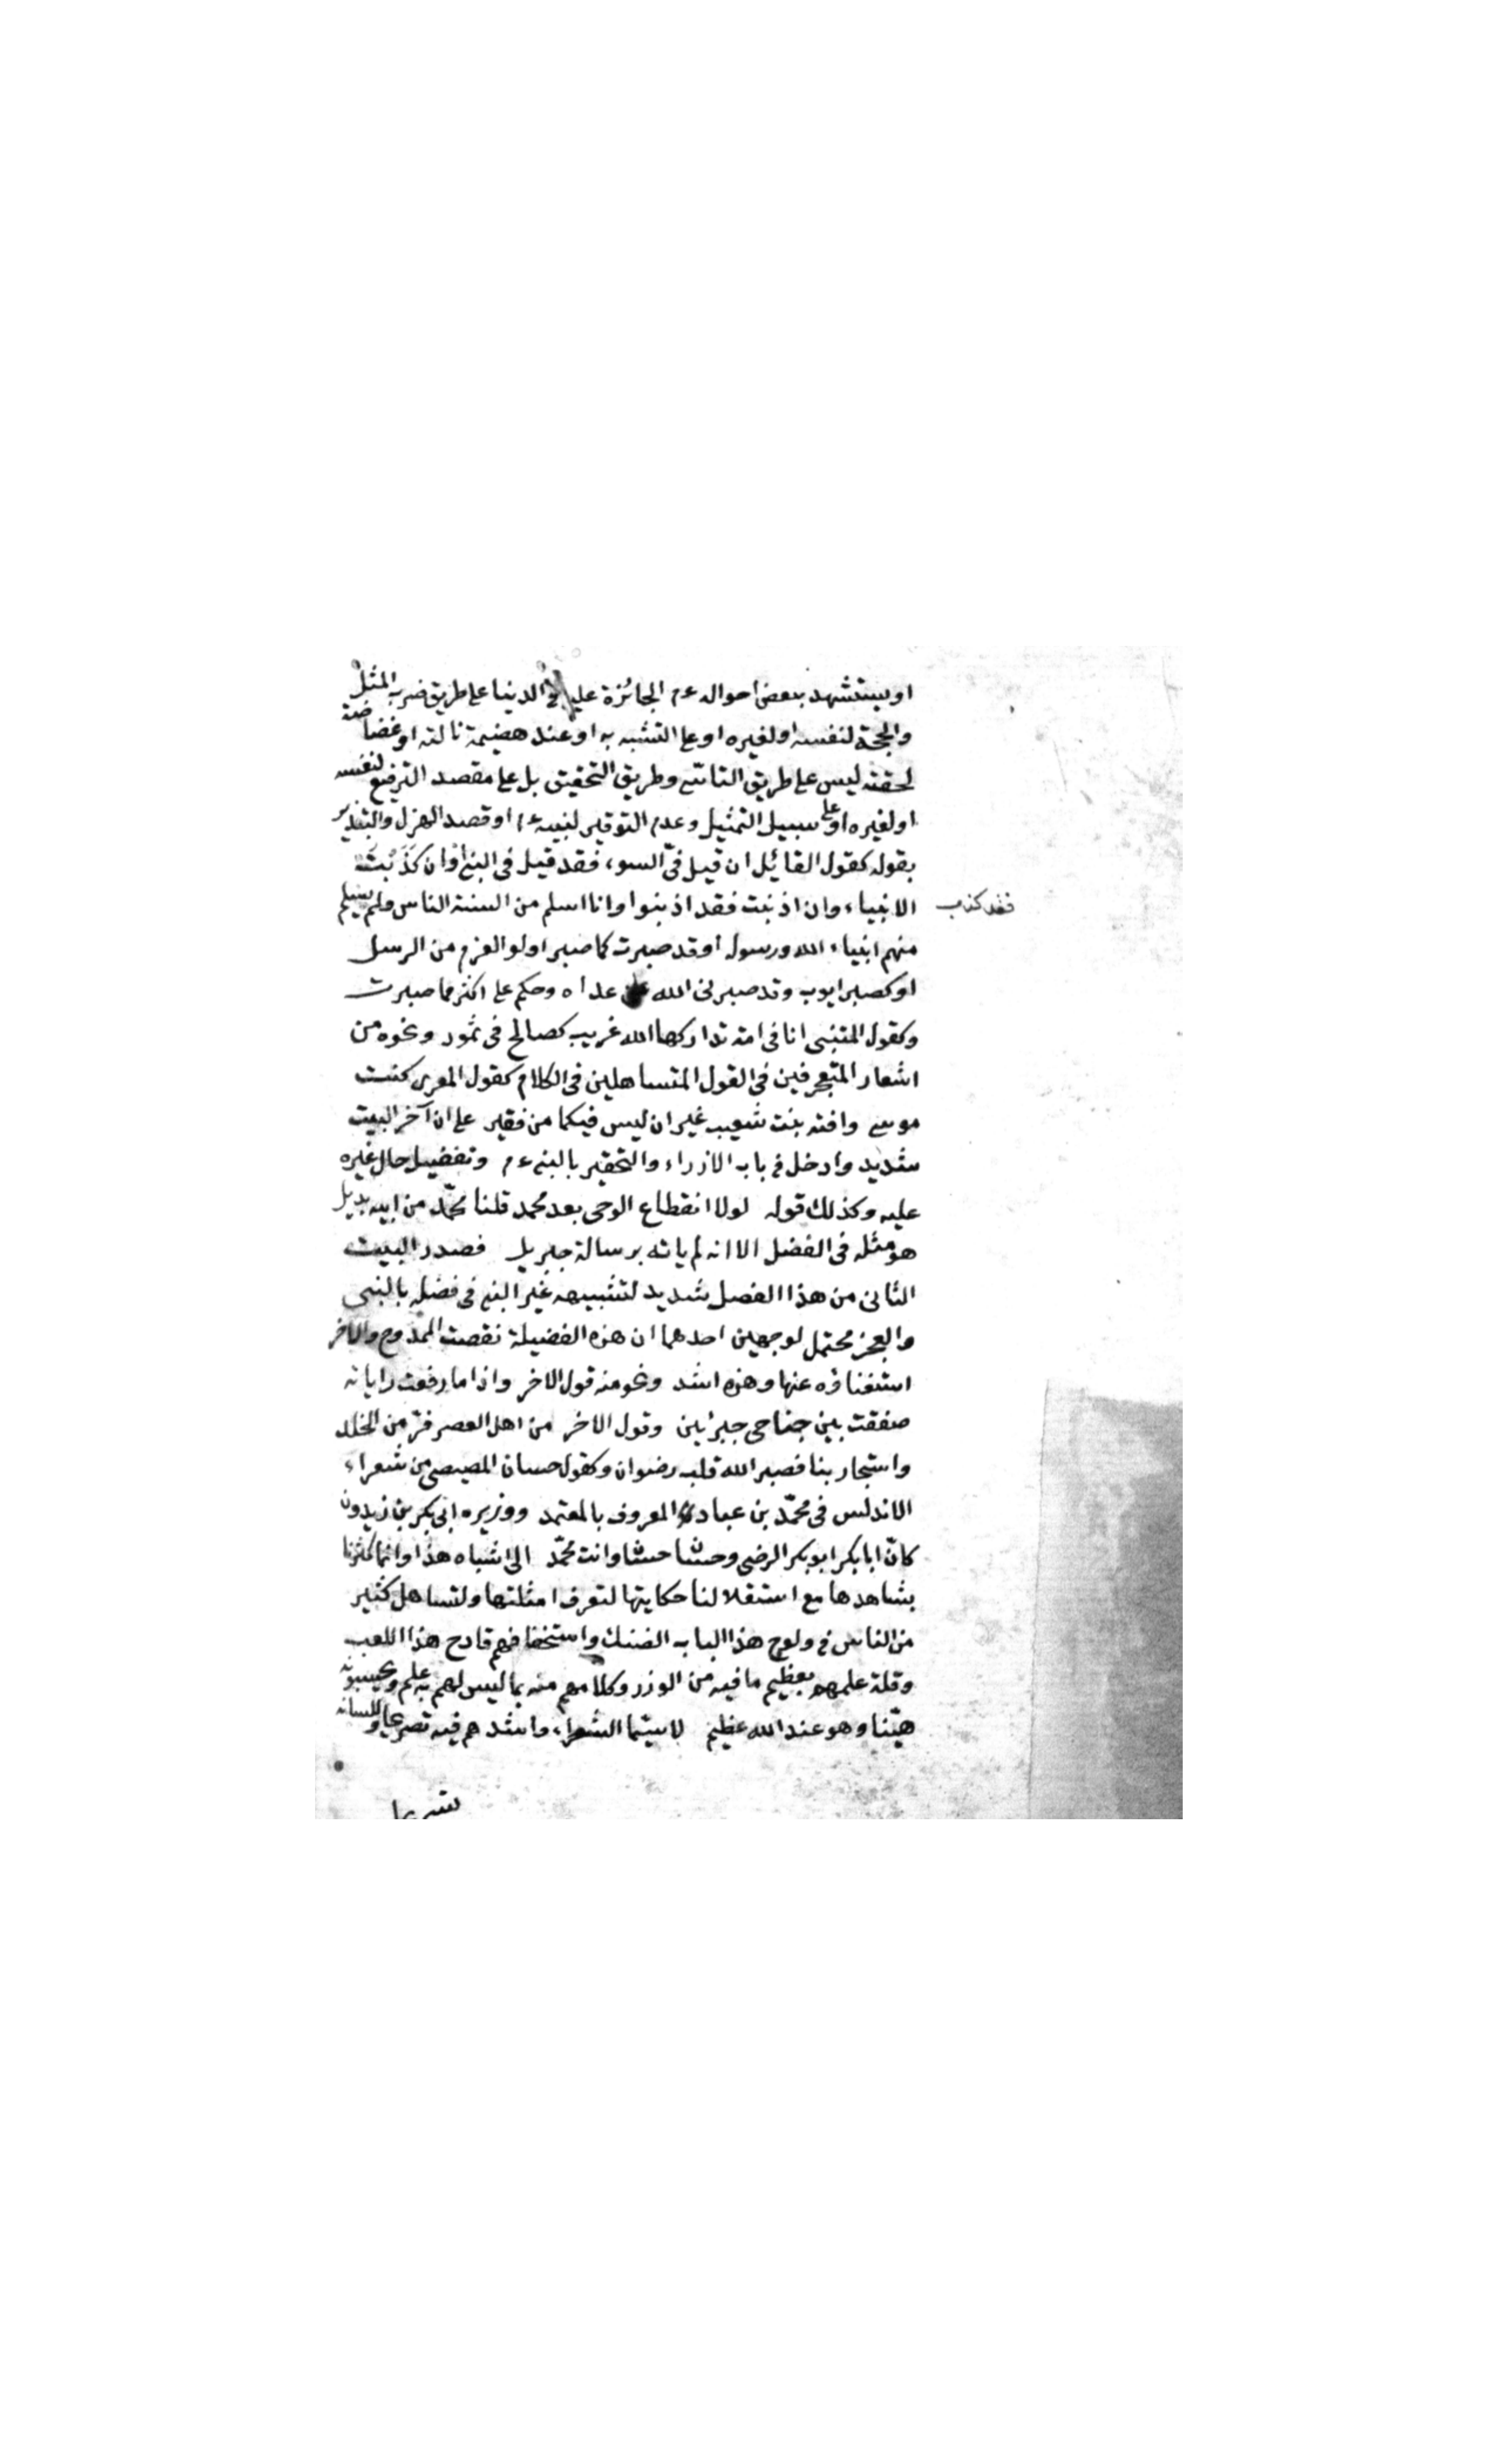 او يستشهد ببعض احواله عم الجائزة عليه في الدنيا على طريق ضرب المثل
والحجة لنفسه او لغيره او على التشبه به او عند هضيمة نالته او غضاضة
لحقته ليس على طريق التاسي وطريق التحقيق بل على مقصد الترفيع لنفسه
او لغيره او على سبيل التمثيل وعدم التوقير لنبيه عم او قصد الهزل والتنذير
بقوله كقول القائل ان قيل فيّ السوء فقد قيل في النبي او ان كَذَّبْتَ
الانبياء وان اذنبت فقد اذنبوا وانا اسلم من السنة الناس ولم يسلم
فقد كذب
منهم انبياء الله ورسوله او قد صبرت كما صبر اولو العزم من الرسل
او كصبر ايوب وقد صبر نبى الله عن عداه وحكم على اكثر مما صبرت
وكقول المتنبى انا فى امة تداركها الله غريب كصالح فى ثمود ونحوه من
اشعار المتعجرفين في القول المتساهلين فى الكلام كقول المعرى كنت
موسى وافته بنت شعيب غير ان ليس فيكما من فقير على ان آخر البيت
شديد وادخل فى باب الازراء والتحقير بالنبى عم وتفضيل حال غيره
عليه وكذلك قوله لولا انقطاع الوحى بعد محمد قلنا محمّد من ابيه بديل
هو مثله فى الفضل الا انه لم ياته برسالة جبريل فصدر البيت
الثانى من هذا الفصل شديد لتشبيهه غير النبى فى فضله بالنبى
والعجز محتمل لوجهين احدهما ان هذه الفضيلة نقصت الممدوح والاخر
استغناؤه عنها وهذه اشد ونحو منه قول الاخر واذا ما رفعت راياته
صفقت بين جناحى جبرئين وقول الاخر من اهل العصر فرّ من الخلد
واستجار بنا فصبر الله قلب رضوان وكقول حسان المصيصى من شعراء
الاندلس فى محمّد بن عباد المعروف بالمعتمد ووزيره ابى بكر بن زيدون
كانّ ابا بكر ابو بكر الرضى وحسّانا حسّان وانت محمّد الى اشباه هذا وانما كثرنا
بشاهدها مع استثقالنا حكايتها لتعرف امثلتها ولتساهل كثير
من الناس فى ولوج هذا الباب الضنك واستخفافهم فادح هذا اللعب
وقلة علمهم بعظيم ما فيه من الوزر وكلامهم منه بما ليس لهم به علم ويحسبونه
هيّنا وهو عند الله عظيم لا سيّما الشعراء واشدهم فيه تصريحا وللسانه